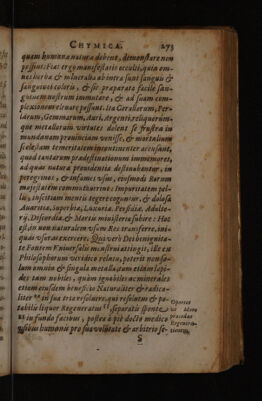 CHYMICA. 273
quam humana natura debent, demonstrare non
possint: Hac ergo manifestatio occulti, quin om-
nes herbæ & mineralia ab intra sunt sanguis &
sanguinei coloris, & sic præparato facile san-
guinem nostrum immutare, & ad suam com-
plexionem elevare possunt. Ita Corallorum, Per-
larum, Gemmarum, Auri, Argenti, reliquorum-
que metallorum virtutes dolent se frustra in
mundanam provinciam venisse, & mortalium
scelus, tam temeritatem incontinenter accusant,
quod tantarum prædestinationum immemores,
ad quas natura providentia destinabantur, in
peregrinos, & infames usus, ejusmodi Rerum
majestatem commutaverint: Impuritatem pel-
lis, infectiam mentis tegere coguntur, & dolosa
Avaritia, Superbia, Luxuria, Perfidia, Adulte-
rij, Discordia, & Mortis ministeria subire: Hoc
est, in non naturalem usum Res transferre, ini-
quas usuras exercere. Qui verò Dei benignita-
te Fontem Universalis menstrui attingit, ille ex
Philosophorum veridico relatu, poterit non so-
lum omnia & singula metalla, tam etiam lapi-
des tam nobiles, quàm ignobiles ac minerales
etiam ejusdem beneficio Naturaliter & radica-
liter in sua tria resolvere, qui resolutus & po-
tabilis liquor Regeneratus, separatis sponte
in fundo facibus, postea à pio docto medico
usibus humanis pro sua voluntate & arbitrio se-
Oportet
ut Mors
præcedat
Regenera-
tionem.
S